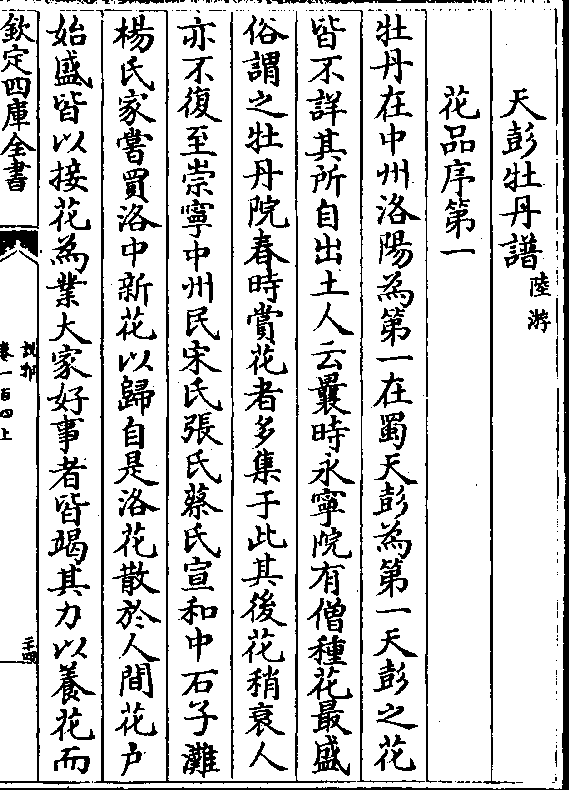 天彭牡丹譜陸游
花品序第一
牡丹在中州洛陽為第一在蜀天彭為第一天彭之花
皆不詳其所自出土人云曩時永寧院有僧種花最盛
俗謂之牡丹院春時賞花者多集于此其後花稍衰人
亦不復至崇寧中州民宋氏張氏蔡氏宣和中石子灘
楊氏家嘗買洛中新花以歸自是洛花散於人間花户
始盛皆以接花為業大家好事者皆竭其力以養花而
欽定四庫全書
說郛
卷一百四上
二十四